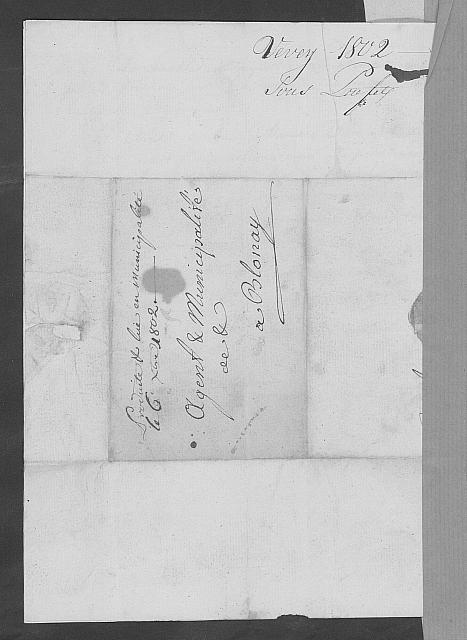 Vevey 1802
Sous Préfet
Produite & lue en municipalité
le 6 Xbre 1802.
Agent & Municipalité
de &
a Blonay